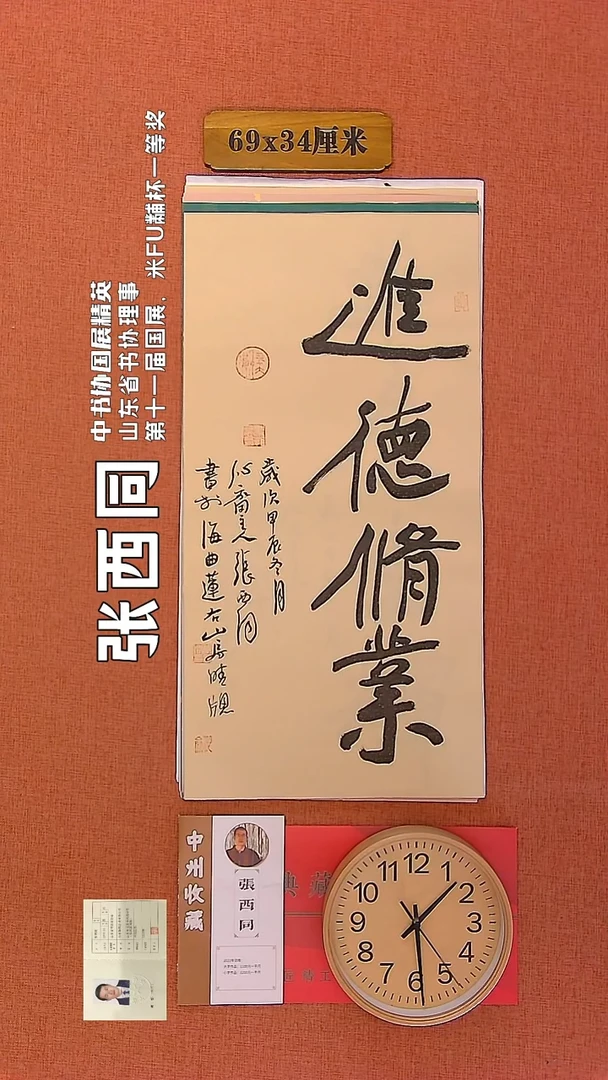 69x34厘米
中书协国展精英
山东省书协理事
第十一届国展、米FU黼杯一等奖
张西同
進德脩業
歲次甲辰冬月
沁齋主人張西同
書於海曲蓮石山房晴牕
中美文藏
張西同
典藏
12
1
2
3
4
5
6
7
8
9
10
11